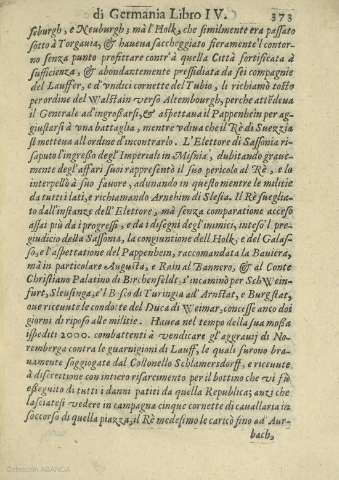 di Germania Libro IV. 373
ſsburgh, e Neuburgh; mà l'Holk, che ſimilmente era paſſato
ſotto à Torgauia, & haueua ſaccheggiato fieramente l'contor-
no ſenza punto profittare contr'à quella Città fortificata à
ſufficienza, & abondantemente preſſidiata da ſei compagnie
del Lauffer, e d'vndici cornette del Tubio, li richiamò toſto
per ordine del Walſtain verſo Altembourgh, perche attēdeua
il Generale ad'ingroſſarſi, & aſpettaua il Pappenheim per ag-
giuſtarſi à vna battaglia, mentre vdiua che'l Rè di Suezzia
ſi metteua all'ordine d'incontrarlo. L'Elettore di Saſſonia ri-
ſaputo l'ingreſſo degl'Imperiali in Miſnia, dubitando graue-
mente degl'affari ſuoi rappreſentò il ſuo pericolo al Rè, e lo
interpellò à ſuo fauore, adunando in queſto mentre le militie
da tutti i lati, e richiamando Arnehim di Sleſia. Il Rè ſueglia-
to dall'inſtanze dell'Elettore, mà ſenza comparatione acceſo
aſſai più da i progreſſi, e da i diſegni degl'inimici, inteſo'l pre-
giudicio della Saſſonia, la congiuntione dell'Holk, e del Galaſ-
ſo, e l'aſpettatione del Pappenheim, raccomandata la Bauiera,
mà in particolare Auguſta, e Rain al Bannero, & al Conte
Chriſtiano Palatino di Birchenfeldt, s'incaminò per SchWein-
furt, Sleuſinga, e'l Boſco di Turingia ad Arnſtat, e Burgſtat,
oue riceuute le condotte del Duca di Weimar, conceſſe anco doi
giorni di ripoſo alle militie. Haueua nel tempo della ſua moſſa
iſpediti 2000. combattenti à vendicare gl'aggrauij di No-
remberga contro le guarnigioni di Lauff, le quali furono bra-
uamente ſoggiogate dal Collonello Schlamersdorff, e riceuute
à diſcrettione con intiero riſarcimento per il bottino che vi fù
eſſeguito di tutti i danni patiti da quella Republica; anzi che
laſciateſi vedere in campagna cinque cornette di cauallaria in
ſoccorſo di quella piazza, il Rè medeſimo le caricò fino ad Aur-
bach,
Colección ABANCA